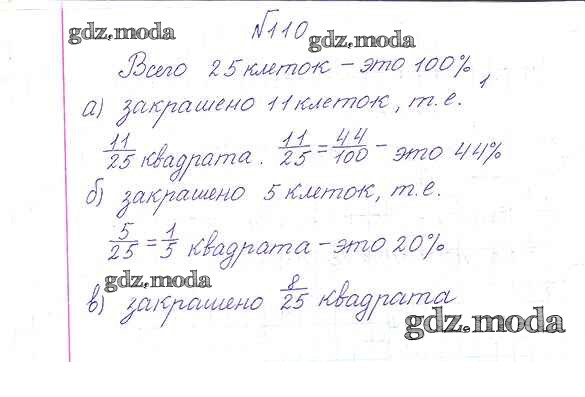 gdz.moda
№110
gdz.moda
Всего 25 клеток – это 100%,
а) закрашено 11 клеток, т.е.
11/25 квадрата. 11/25 = 44/100 – это 44%
б) закрашено 5 клеток, т.е.
5/25 = 1/5 квадрата – это 20%
gdz.moda
в) закрашено 8/25 квадрата
gdz.moda